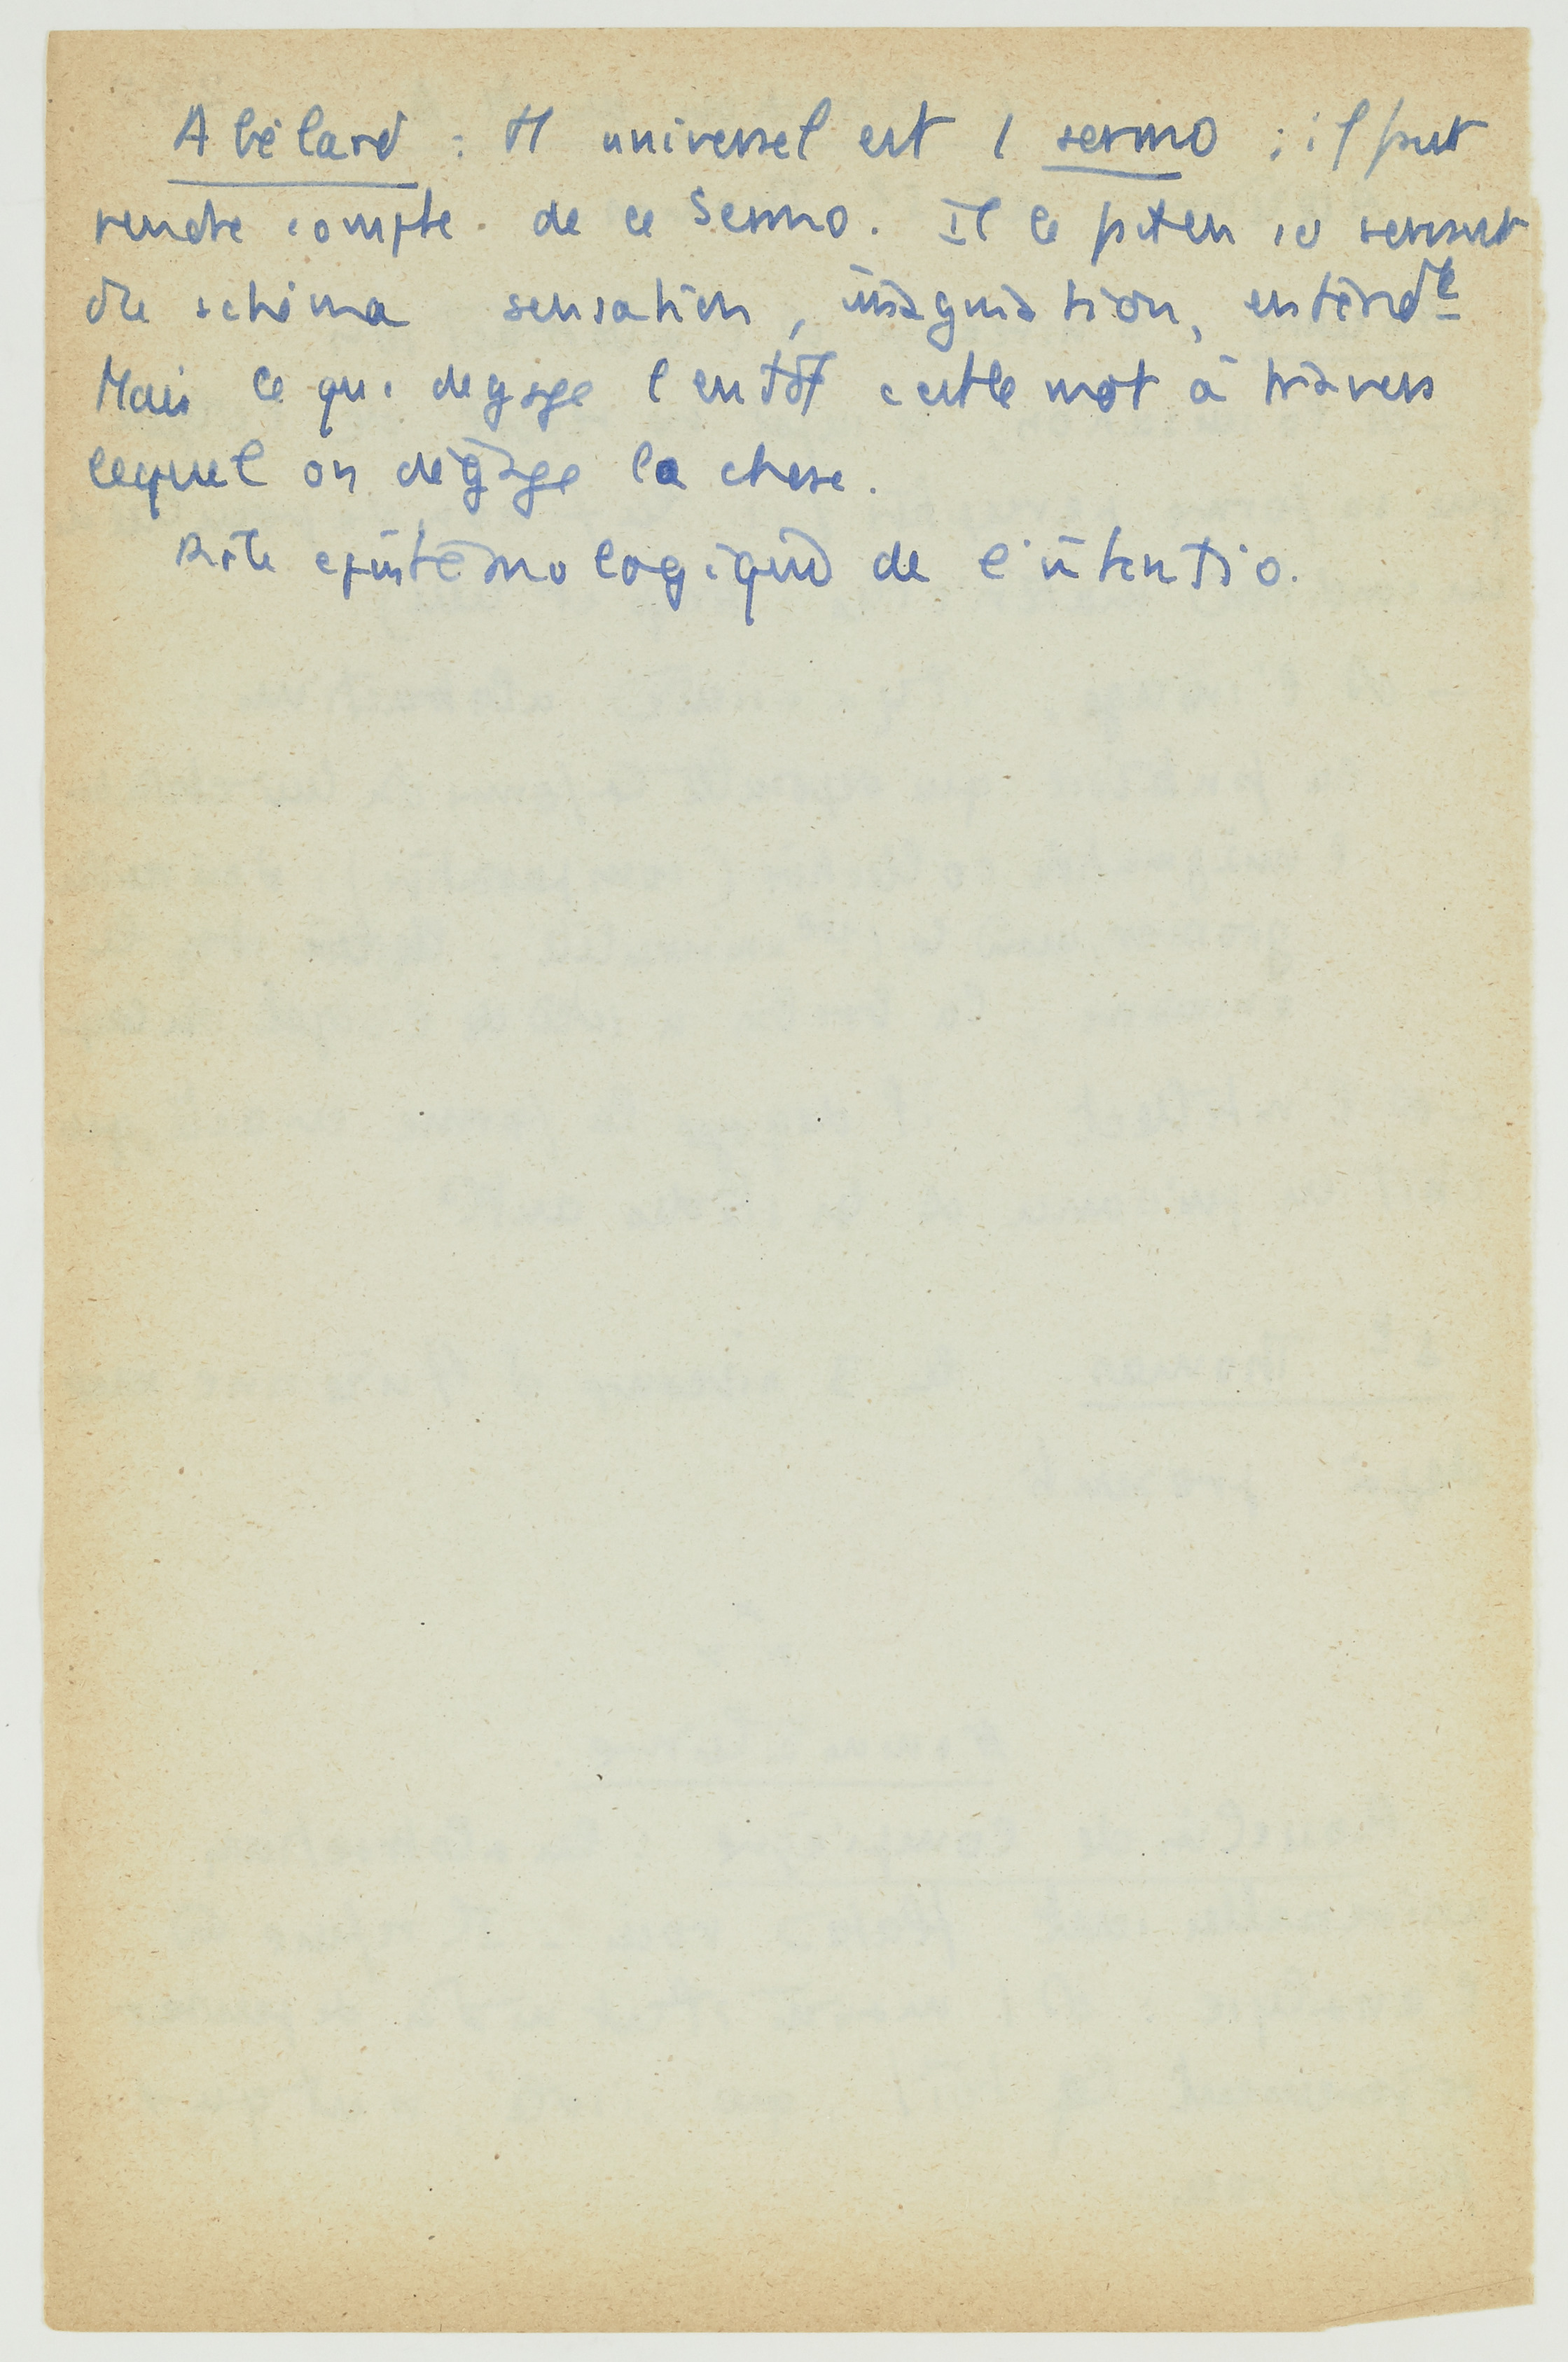 Abélard : tt universel est 1 sermo ; il faut
rendre compte de ce Sermo. Il le fit en se servant
du schéma sensation, imagination, entendt
Mais ce qui dégage l'entdt c'est le mot à travers
lequel on dégage la chose.
Rôle épistémologique de l'intentio.